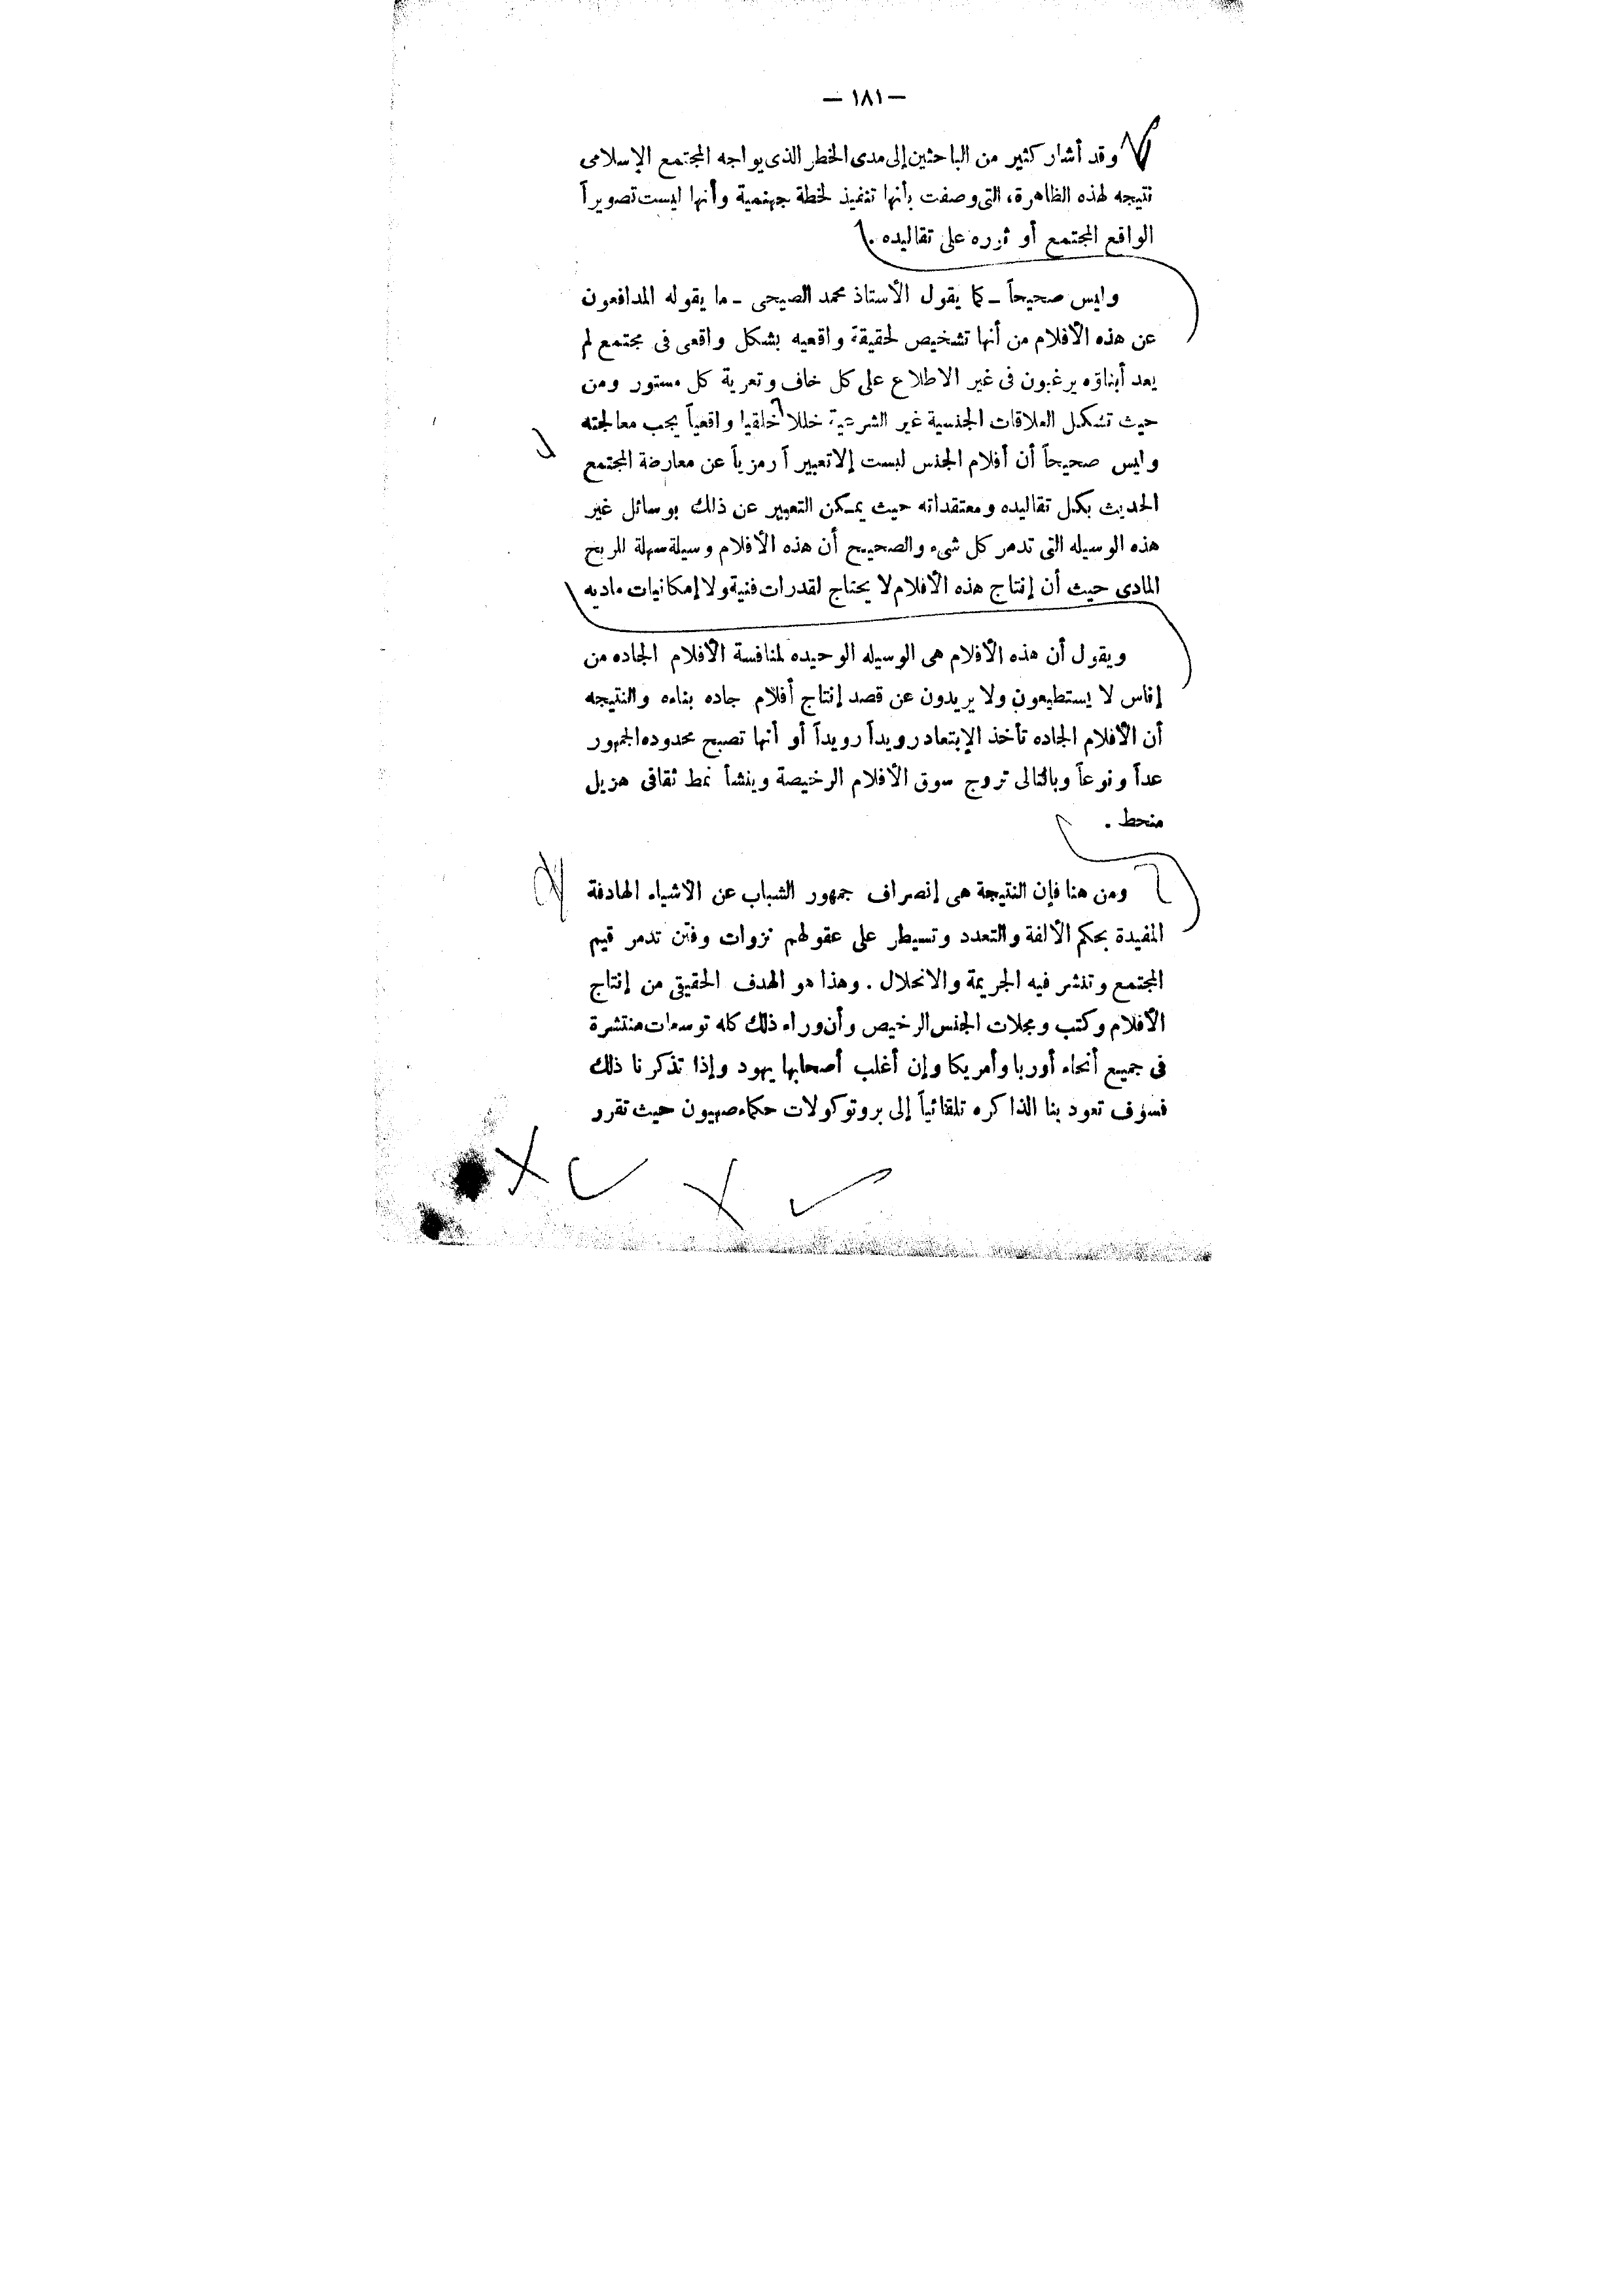 — ١٨١ —
وقد أشار كثير من الباحثين إلى مدى الخطر الذى يواجه المجتمع الإسلامى
نتيجه لهذه الظاهرة، التى وصفت بأنها تنفيذ لخطة جهنمية وأنها ليست تصويراً
الواقع المجتمع أو ثوره على تقاليده .
وليس صحيحاً ـ كما يقول الأستاذ محمد الصيحى ـ ما يقوله المدافعون
عن هذه الأفلام من أنها تشخيص لحقيقة واقعيه بشكل واقعى فى مجتمع لم
يعد أبناؤه يرغبون فى غير الاطلاع على كل خاف وتعرية كل مستور ومن
حيث تشكل العلاقات الجنسية غير الشرعية خللا خلقيا واقعياً يجب معالجته
وليس صحيحاً أن أفلام الجنس ليست إلا تعبيراً رمزياً عن معارضة المجتمع
الحديث بكل تقاليده ومعتقداته حيث يمكن التعبير عن ذلك بوسائل غير
هذه الوسيله التى تدمر كل شىء والصحيح أن هذه الأفلام وسيلة سهلة للربح
المادى حيث أن إنتاج هذه الأفلام لا يحتاج لقدرات فنية ولا إمكانيات ماديه
ويقول أن هذه الأفلام هى الوسيله الوحيده لمنافسة الأفلام الجاده من
إناس لا يستطيعون ولا يريدون عن قصد إنتاج أفلام جاده بناءه والنتيجه
أن الأفلام الجاده تأخذ الإبتعاد رويداً رويداً أو أنها تصبح محدوده الجمهور
عداً ونوعاً وبالتالى تروج سوق الأفلام الرخيصة وينشأ نمط ثقافى هزيل
منحط .
ومن هنا فإن النتيجة هى إنصراف جمهور الشباب عن الاشياء الهادفة
المفيدة بحكم الألفة والتعدد وتسيطر على عقولهم نزوات وفتن تدمر قيم
المجتمع وتنشر فيه الجريمة والانحلال . وهذا هو الهدف الحقيقى من إنتاج
الأفلام وكتب ومجلات الجنس الرخيص وأن وراء ذلك كله توسعات منتشرة
فى جميع أنحاء أوربا وأمريكا وإن أغلب أصحابها يهود وإذا تذكرنا ذلك
فسوف تعود بنا الذاكره تلقائياً إلى بروتوكولات حكماء صهيون حيث تقرر